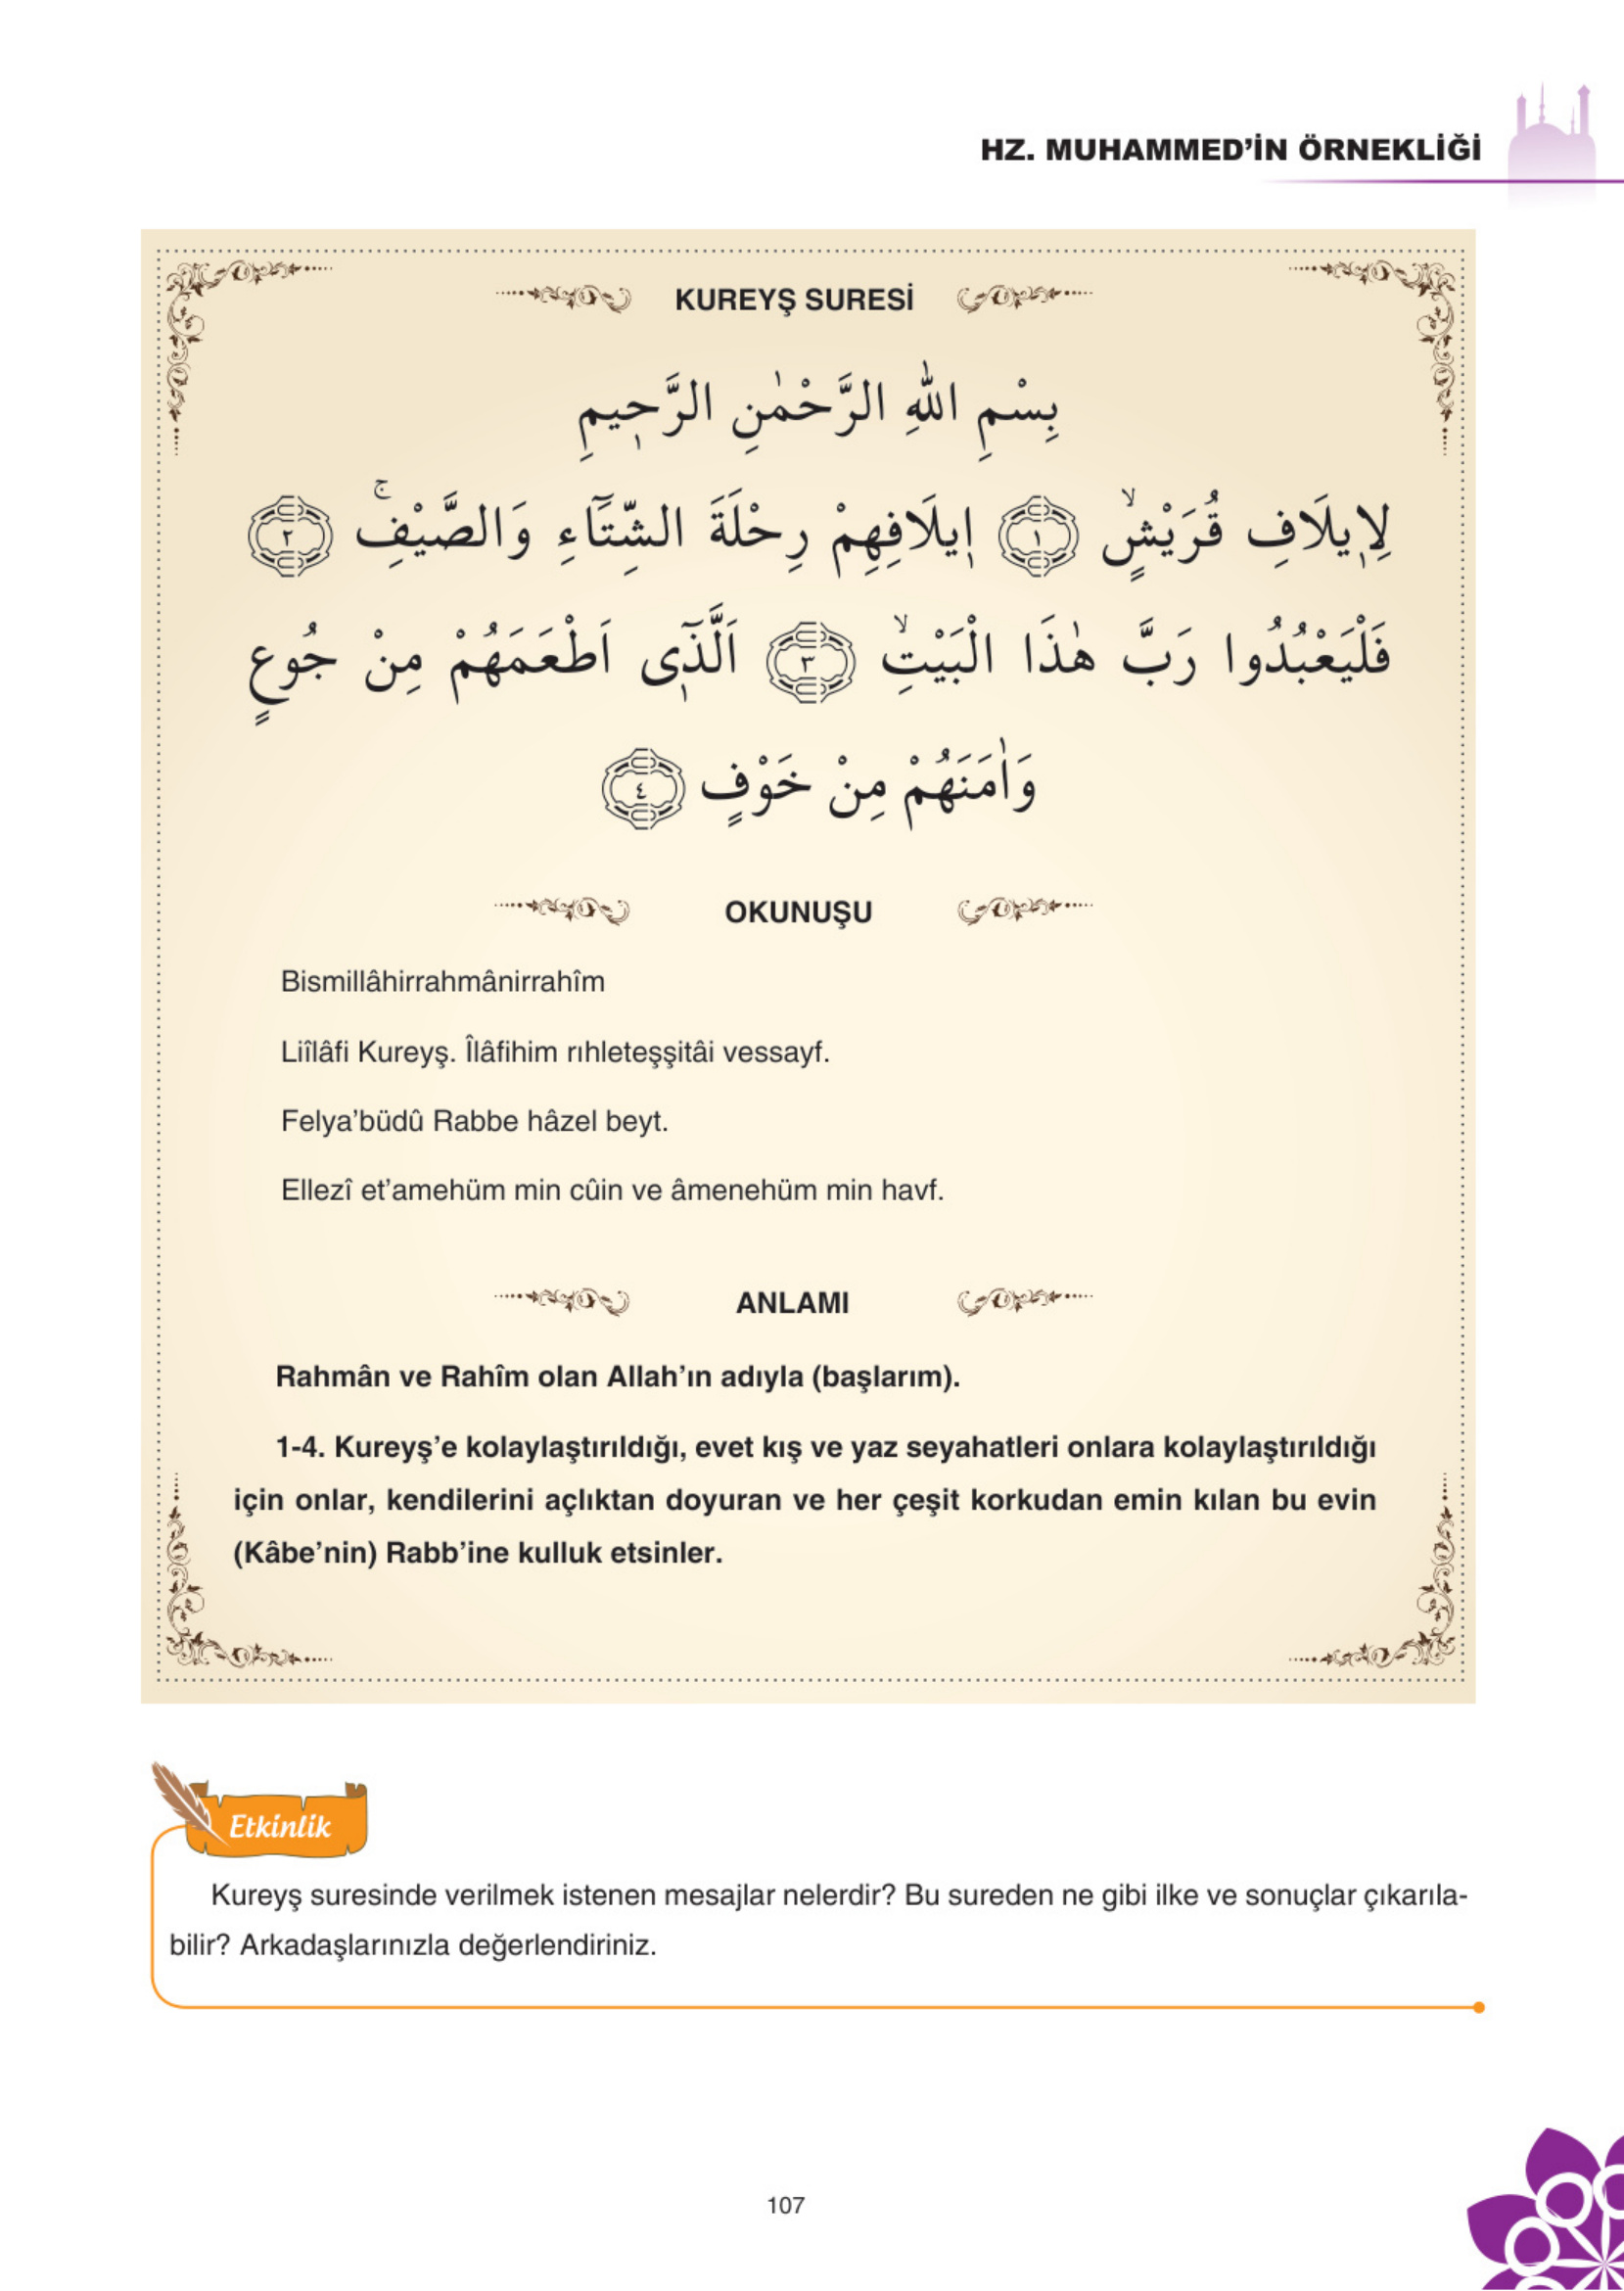 HZ. MUHAMMED’İN ÖRNEKLİĞİ
KUREYŞ SURESİ
بِسْمِ اللّٰهِ الرَّحْمٰنِ الرَّح۪يمِ
لِا۪يلَافِ قُرَيْشٍۙ ﴿١﴾ ا۪يلَافِهِمْ رِحْلَةَ الشِّتَٓاءِ وَالصَّيْفِۚ ﴿٢﴾
فَلْيَعْبُدُوا رَبَّ هٰذَا الْبَيْتِۙ ﴿٣﴾ اَلَّذ۪ٓى اَطْعَمَهُمْ مِنْ جُوعٍ
وَاٰمَنَهُمْ مِنْ خَوْفٍ ﴿٤﴾
OKUNUŞU
Bismillâhirrahmânirrahîm
Liîlâfi Kureyş. Îlâfihim rıhleteşşitâi vessayf.
Felya’büdû Rabbe hâzel beyt.
Ellezî et’amehüm min cûin ve âmenehüm min havf.
ANLAMI
Rahmân ve Rahîm olan Allah’ın adıyla (başlarım).
1-4. Kureyş’e kolaylaştırıldığı, evet kış ve yaz seyahatleri onlara kolaylaştırıldığı
için onlar, kendilerini açlıktan doyuran ve her çeşit korkudan emin kılan bu evin
(Kâbe’nin) Rabb’ine kulluk etsinler.
Etkinlik
Kureyş suresinde verilmek istenen mesajlar nelerdir? Bu sureden ne gibi ilke ve sonuçlar çıkarıla-
bilir? Arkadaşlarınızla değerlendiriniz.
107